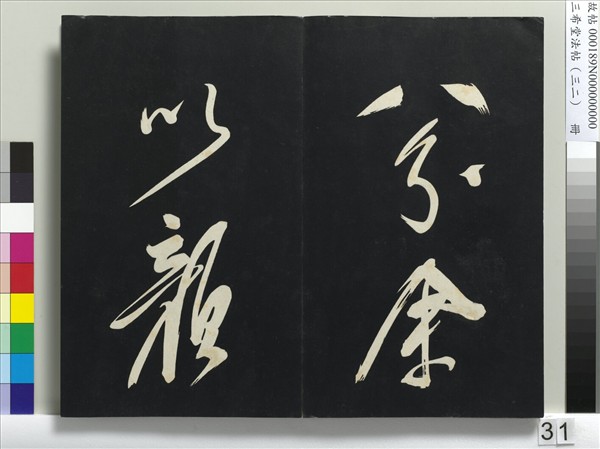 八分余
以顏
故帖 000189N000000000
三希堂法帖（三二） 冊
31